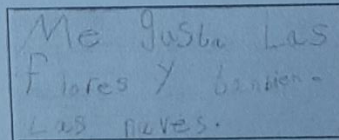 Me gusta Las
flores y también.
Las naves.